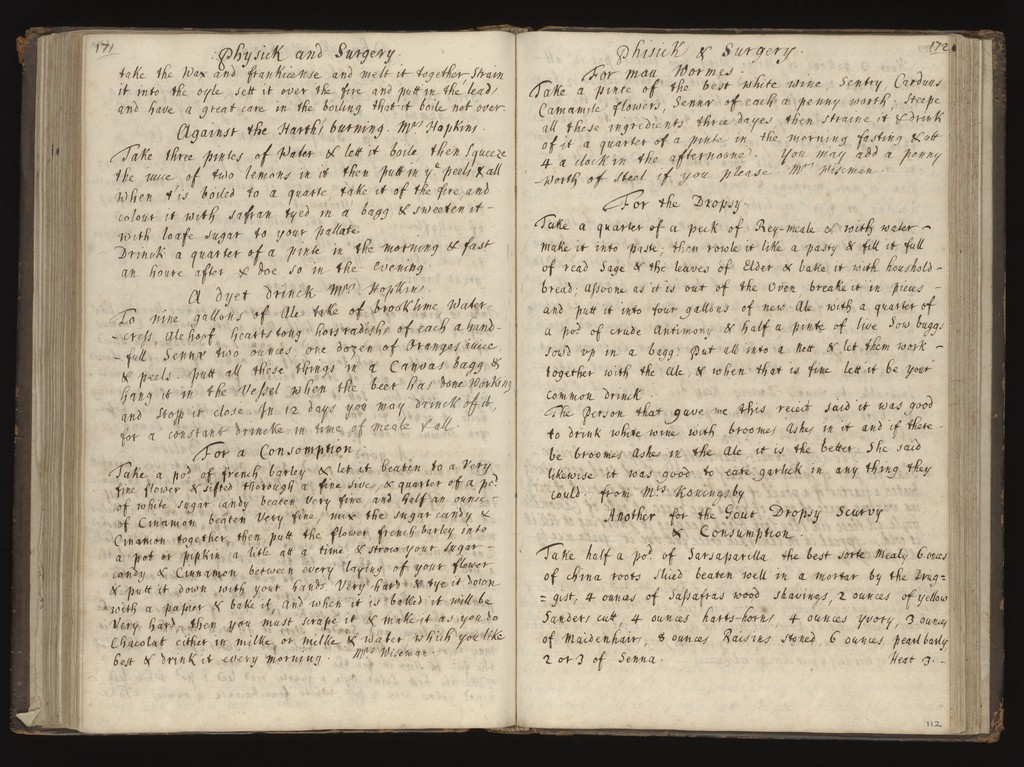 171
Physick and Surgery.
take the Wax and frankicense and melt it together, Strain
it into the oyle, sett it over the fire and putt in the lead,
and have a great care in the boiling that it boile not over.
Against the Harth burning. Mrs Hopkins.
Take three pintes of Water & lett it boile then Squeeze
the iuice of two lemons in it then putt in ye peels & all
when t'is boiled to a quarte take it of the fire and
colour it with safran tyed in a bagg & sweeten it -
with loafe sugar to your pallate
Drinck a quarter of a pinte in the morning & fast
an houre after & doe so in the evening
A dyet drinck Mrs Hopkins.
To nine gallons of Ale take of brooklime Water-
-cress Alehoof hearts tong horsradishe of each a hand-
-full Senna two ounces one dozen of Oranges iuice
& peels. putt all these things in a Canvas bagg &
hang it in the Vessel when the beer has done Working
and Stopp it close. In 12 days you may drinck of it,
for a constant drincke in time of meale & all.
For a Consumption
Take a pod. of french barley & let it beaten to a Very
fine flower & sifted thorough a fine sive, & quarter of a pd
of white sugar candy beaten Very fine and half an ounce -
of Cinamon beaten Very fine mix the sugar candy &
Cinamon together, then putt the flower french barley into
a pot or pipkin a litle att a time & strow your Sugar -
candy & Cinnamon between every laying of your flower
& putt it down with your hands Very hard & tye it down
with a papier & bake it, and when it is baked it will be
Very hard, then you must scrape it & make it as you do
Chacolat either in milke or milke & Water which you like
best & drink it every morning. Mrs Wiseman.
172
Phisick & Surgery.
For mau Wormes.
Take a pinte of the best white wine, Sentry, Carduus
Camamile flowers, Senna of each a penny worth; Steepe
all these ingredients three dayes then straine it & drink
of it a quarter of a pinte in the morning fasting & att
4 a clock in the afternoone. You may add a penny
worth of Steel if you please Mrs Wiseman.
For the Dropsy.
Take a quarter of a peck of Rey-meale & with water -
make it into paste; then rowle it like a pasty & fill it full
of read Sage & the leaves of Elder & bake it with houshold -
bread; Assoone as it is out of the Oven breake it in pieces -
and putt it into four gallons of new Ale with a quarter of
a pod of crude Antimony & half a pinte of live Sow buggs
sow'd up in a bagg. Put all into a Nett & let them work -
together with the Ale, & when that is fine lett it be your
common drinck
The Person that gave me this receit said it was good
to drink white wine with broomes Ashes in it and if there -
be broomes Ashes in the Ale it is the better. She said
likewise it was good to eate garlick in any thing they
could. from Mrs Koningsby
Another for the Gout Dropsy Scurvy
& Consumption.
Take half a pod. of Sarsaparilla the best sorte Mealy 6 onces
of China roots sliced beaten well in a mortar by the Drug=
=gist, 4 ounces of Sassafras wood shavings, 2 ounces of yellow
Sanders cutt, 4 ounces harts-horn, 4 ounces yvory, 3 ounces
of Maidenhair, 8 ounces Raisins stoned, 6 ounces pearl barly,
2 or 3 of Senna.
Heat 3. -
112